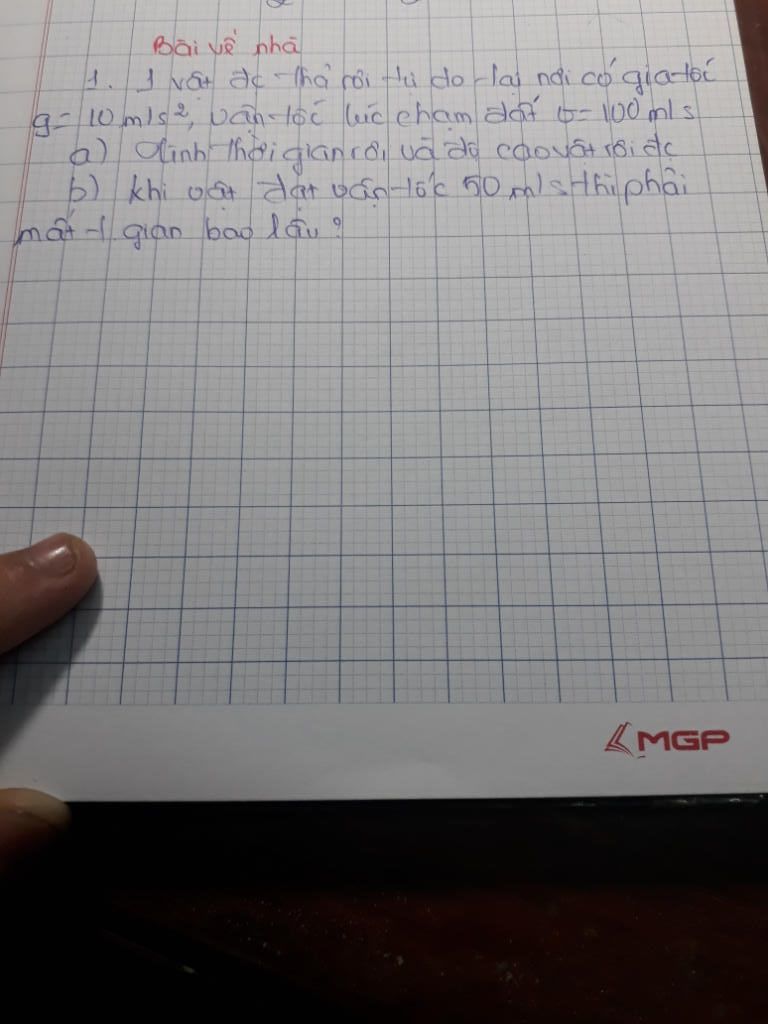 Bài về nhà
1. 1 vật đc thả rơi tự do tại nơi có gia tốc
g = 10 m/s², vận tốc lúc chạm đất v = 100 m/s
a) Tính thời gian rơi và độ cao vật rơi đc
b) khi vật đạt vận tốc 50 m/s thì phải
mất t gian bao lâu?
MGP